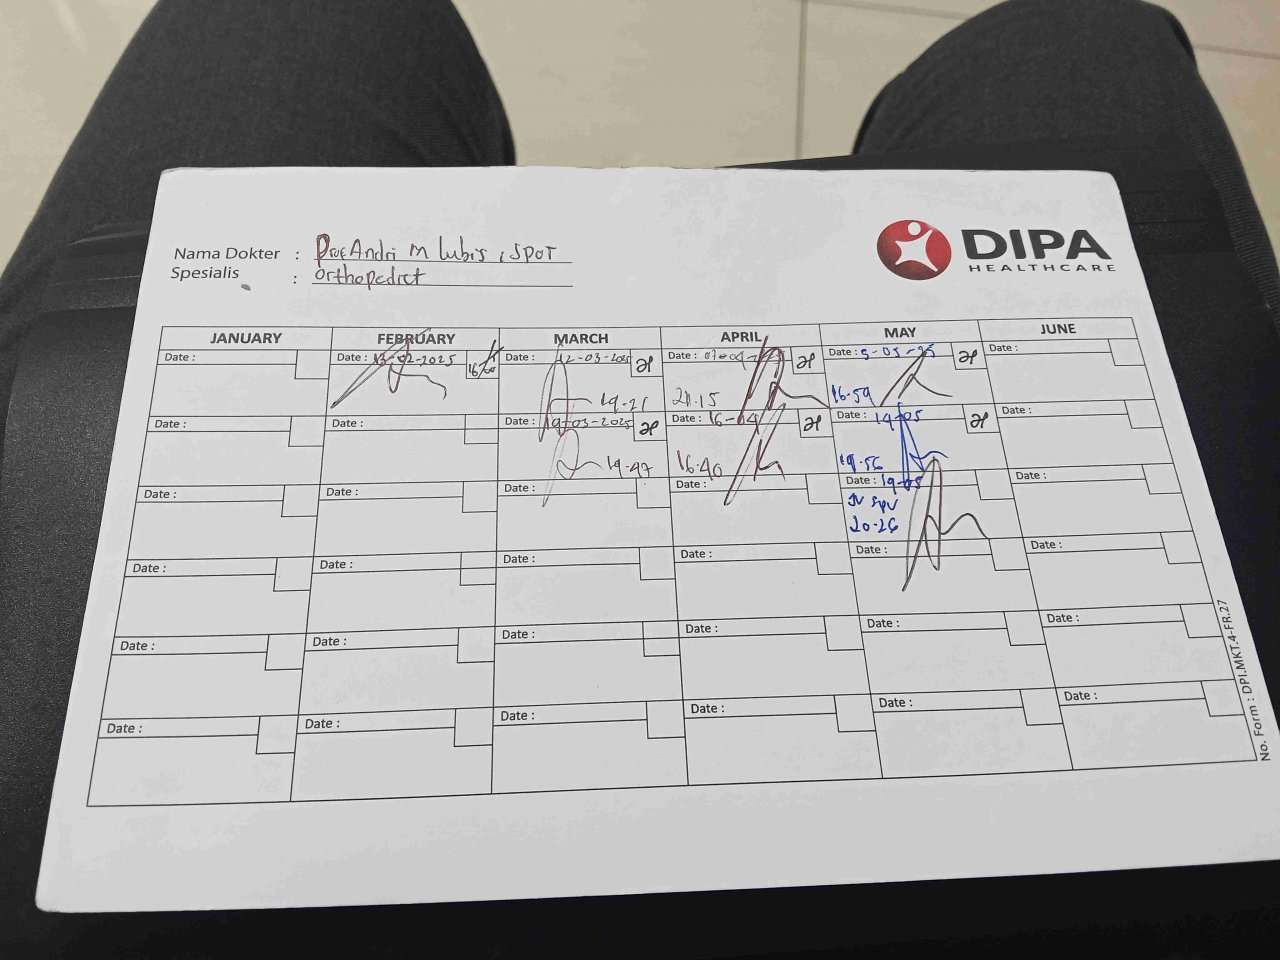 Nama Dokter : Prof Andri M Lubis, SPOT
Spesialis : Orthopedict
DIPA
HEALTHCARE
JANUARY FEBRUARY MARCH APRIL MAY JUNE
Date : Date : 13-02-2025 Date : 12-03-2025 Date : 07-04- Date : 5-05-25 Date :
19-21 21.15 16-59
Date : Date : Date : 19-03-2025 Date : 16-04 Date : 14-05 Date :
19-47 16.40 19-56
Date : Date : Date : Date : Date : 19-05 Date :
JV SPV
20-26
Date : Date : Date : Date : Date : Date :
Date : Date : Date : Date : Date : Date :
Date : Date : Date : Date : Date : Date :
No. Form : DPI.MKT.4-FR.27